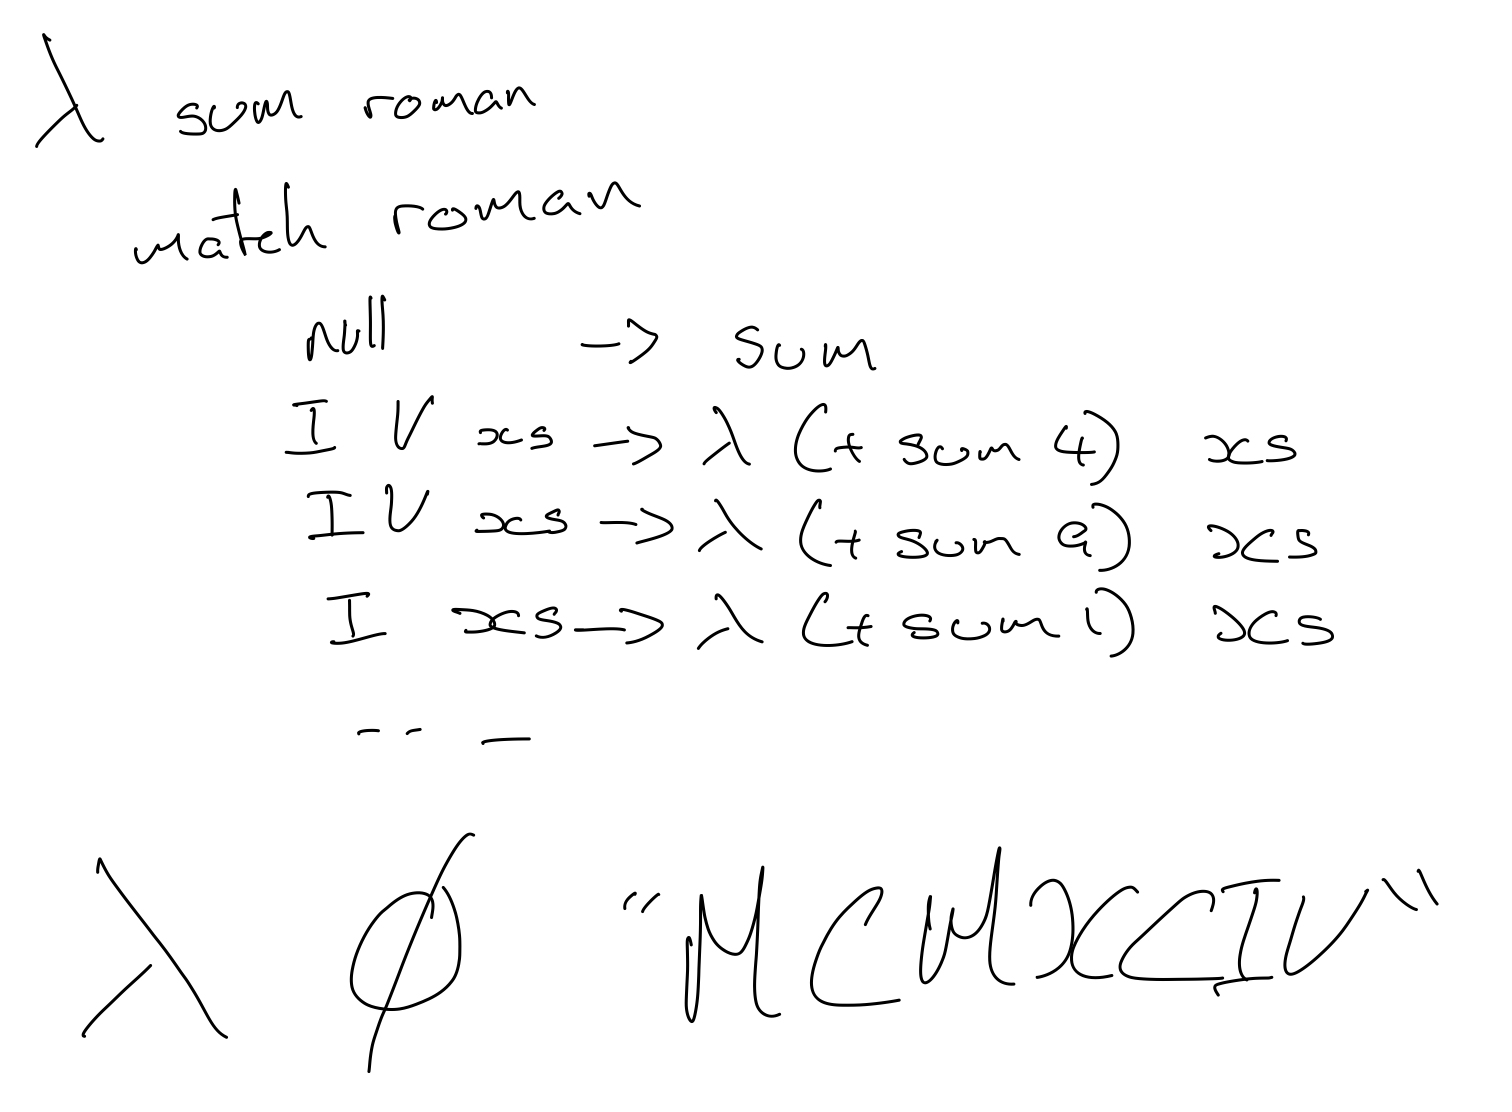 λ sum roman
match roman
null -> sum
I V xs -> λ (+ sum 4) xs
I V xs -> λ (+ sum 9) xs
I xs -> λ (+ sum 1) xs
-- —
λ ∅ "MCMXCIV"